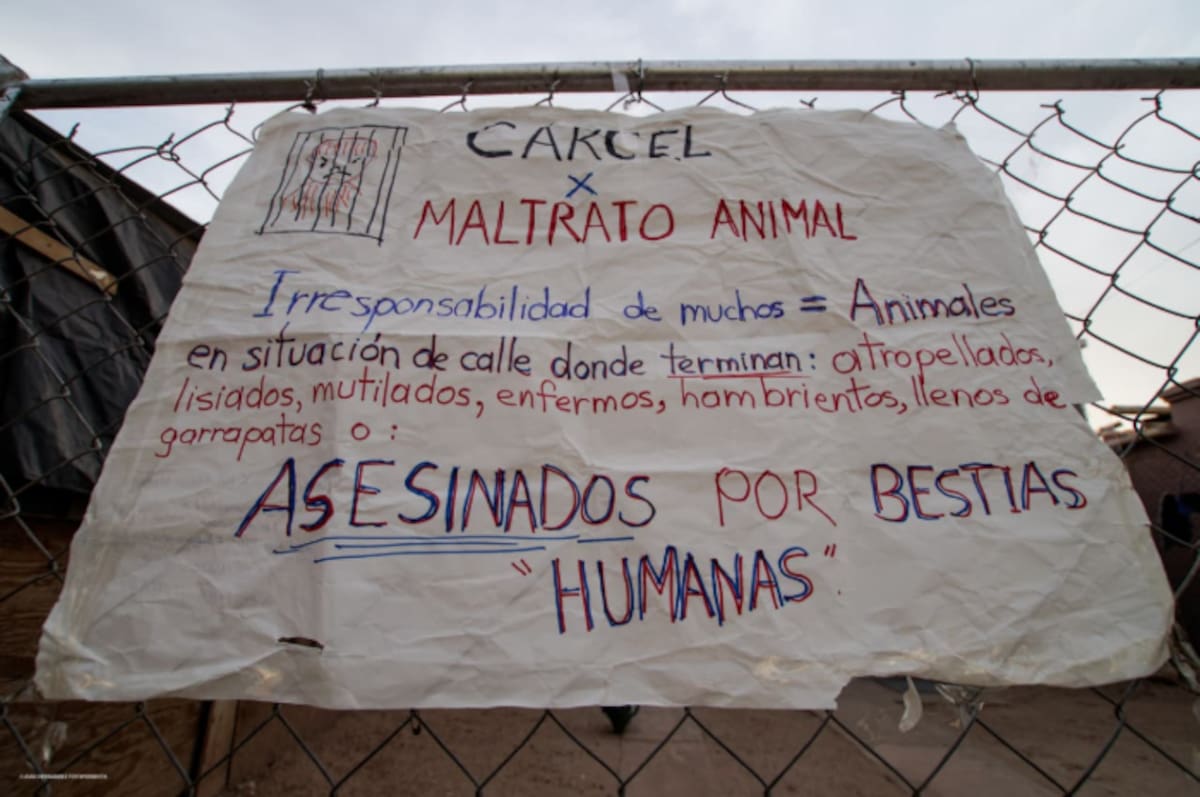 CARCEL
X
MALTRATO ANIMAL
Irresponsabilidad de muchos = Animales
en situación de calle donde terminan: atropellados,
lisiados, mutilados, enfermos, hambrientos, llenos de
garrapatas o :
ASESINADOS POR BESTIAS
"HUMANAS".